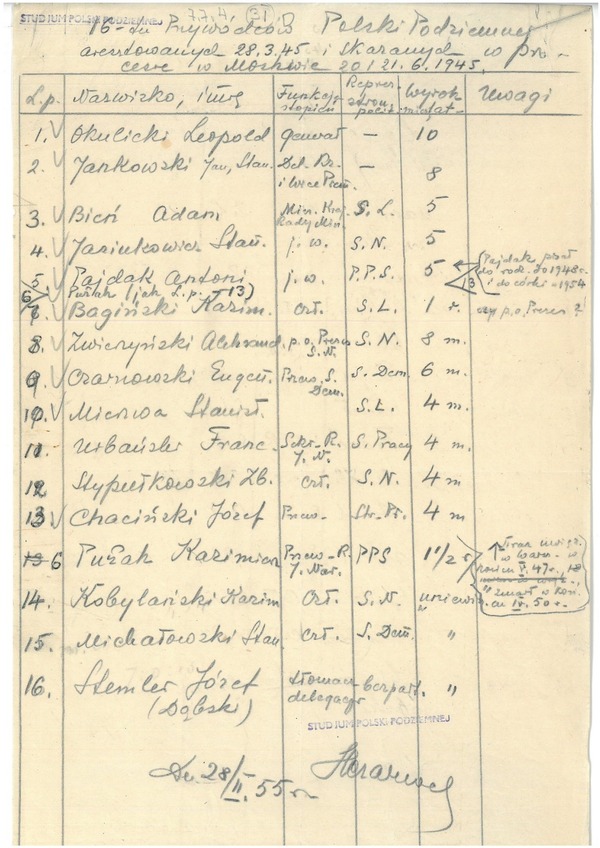 STUDIUM POLSKI PODZIEMNEJ
7.7.4. 31
16-tu Przywódców Polski Podziemnej
aresztowanych 28.3.45 i skazanych w pro-
cesie w Moskwie 20 i 21.6.1945.
L.p. Nazwisko, imię Funkcja, stopień Wyrok Uwagi
1. Okulicki Leopold generał — 10
2. Jankowski Jan, Stan. Del. Rz. i Wice Prem. — 8
3. Bień Adam Min. Kraj. Rady Min. S. L. 5
4. Jasiukowicz Stan. j. w. S. N. 5
5. Pajdak Antoni j. w. P.P.S. 5
Pajdak
do rodz. do 1948 r.
i do córki 1954
6 Pużak (jak L.p. 13)
7. Bagiński Kazim. czł. S.L. 1 r. czy p.o. Prezes?
8. Zwierzyński Aleksand. p.o. Prezes S.N. S. N. 8 m.
9. Czarnowski Eugen. Przew. S. Dem. S. Dem. 6 m.
10. Mierzwa Stanisł. S.L. 4 m.
11. Urbański Franc. Sekr. R. J. N. S. Pracy 4 m
12 Stypułkowski Zb. czł. S. N. 4 m
13 Chaciński Józef Przew. Str. Pr. 4 m
13 6 Pużak Kazimierz Przew. R. J. Nar. PPS 1 1/2 r.
w Warsz. w
V. 47 r., 18
zmarł w
IV. 50 r.
14. Kobylański Kazim czł. S. N. uniewin.
15. Michałowski Stan. czł. S. Dem. "
16. Stemler Józef tłumacz delegacji bezpart. "
(Dąbski)
STUDIUM POLSKI PODZIEMNEJ
Dn. 28/II. 55 r.